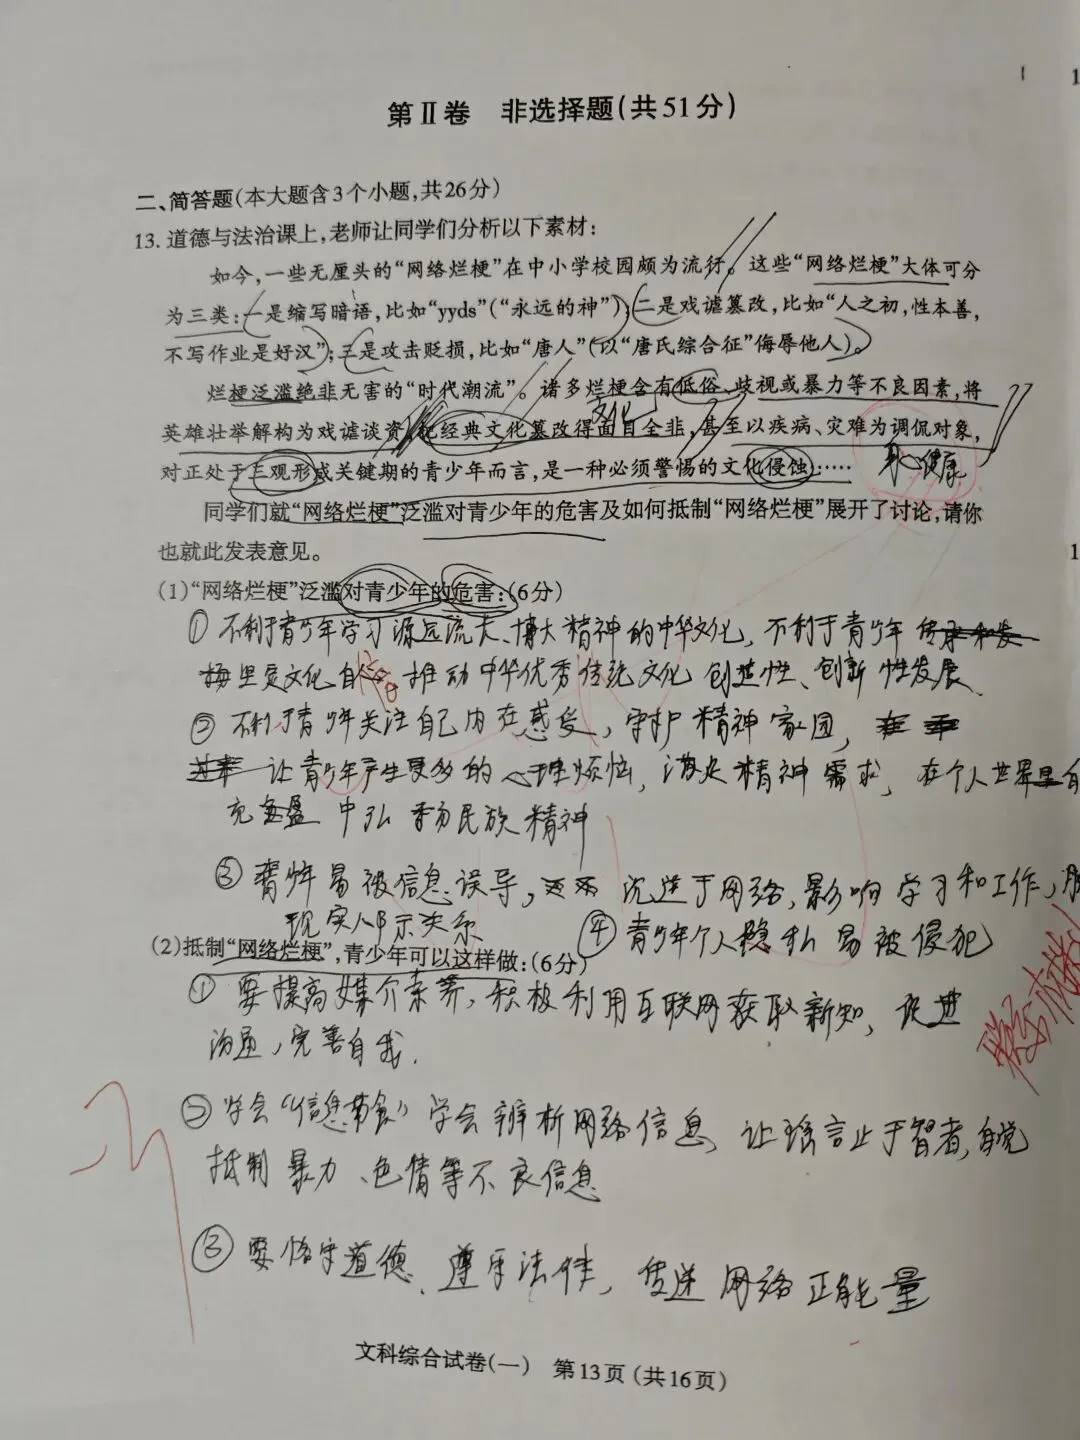 第Ⅱ卷 非选择题(共51分)
二、简答题(本大题含3个小题,共26分)
13.道德与法治课上,老师让同学们分析以下素材:
如今,一些无厘头的“网络烂梗”在中小学校园颇为流行。这些“网络烂梗”大体可分
为三类:一是缩写暗语,比如“yyds”(“永远的神”);二是戏谑篡改,比如“人之初,性本善,
不写作业是好汉”;三是攻击贬损,比如“唐人”(以“唐氏综合征”侮辱他人)。
烂梗泛滥绝非无害的“时代潮流”。诸多烂梗含有低俗、歧视或暴力等不良因素,将
文化
英雄壮举解构为戏谑谈资,把经典文化篡改得面目全非,甚至以疾病、灾难为调侃对象,
对正处于三观形成关键期的青少年而言,是一种必须警惕的文化侵蚀;……
身心健康
同学们就“网络烂梗”泛滥对青少年的危害及如何抵制“网络烂梗”展开了讨论,请你
也就此发表意见。
(1)“网络烂梗”泛滥对青少年的危害:(6分)
①不利于青少年学习源远流长、博大精神的中华文化,不利于青少年
文化自信,推动中华优秀传统文化创造性、创新性发展、
②不利于青少年关注自己内在感受,守护精神家园,
让青少年产生更多的心理烦恼,满足精神需求,在个人世界
充盈中弘扬民族精神
③青少年易被信息误导,沉迷于网络,影响学习和工作,
现实人际关系
④青少年个人隐私易被侵犯
(2)抵制“网络烂梗”,青少年可以这样做:(6分)
①要提高媒介素养,积极利用互联网获取新知,促进
沟通,完善自我.
②学会“信息节食”学会辨析网络信息,让谣言止于智者,自觉
抵制暴力、色情等不良信息
③要恪守道德、遵守法律,传递网络正能量
文科综合试卷(一) 第13页(共16页)